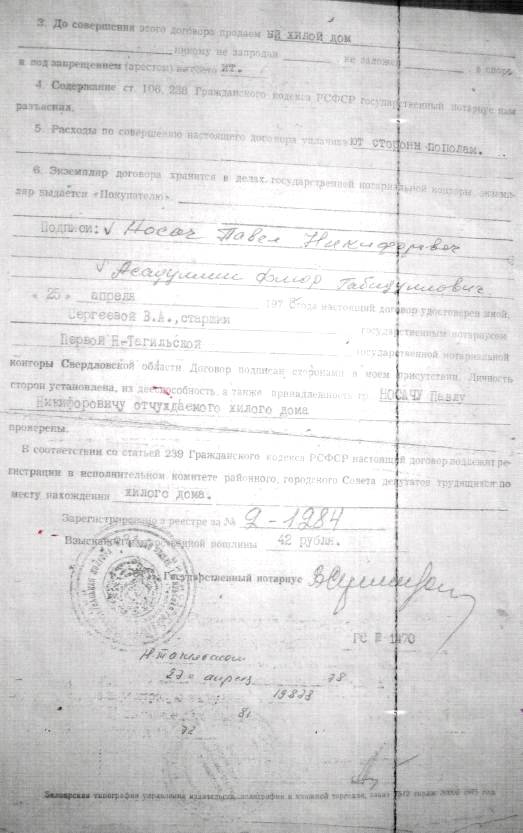 3. До совершения этого договора продаем ый жилой дом
никому не запродан не заложен в споре
и под запрещением (арестом) ит.
4. Содержание ст. 106, 238 Гражданского кодекса РСФСР государственный нотариус нам
разъяснил.
5. Расходы по совершению настоящего договора уплачива ют стороны пополам.
6. Экземпляр договора хранится в делах государственной нотариальной конторы, экзем-
пляр выдается «Покупателю»
Подписи: √ Носач Павел Никифорович
√ Асадуллин Флюр Габидуллович
« 25 » апреля 197 года настоящий договор удостоверен мной,
Сергеевой В.А., старшим государственным нотариусом
Первой Н-Тагильской государственной нотариальной
конторы Свердловской области. Договор подписан сторонами в моем присутствии. Личность
сторон установлена, их дееспособность, а также принадлежность гр. НОСАЧУ Павлу
Никифоровичу отчуждаемого жилого дома
проверены.
В соответствии со статьей 239 Гражданского кодекса РСФСР настоящий договор подлежит ре-
гистрации в исполнительном комитете районного, городского Совета депутатов трудящихся по
месту нахождения жилого дома.
Зарегистрировано в реестре за № 2-1284
Взыскано государственной пошлины 42 рубля.
Государственный нотариус
РС № 1470
27 апреля 78
19878
81
72
типография управления издательств, полиграфии и книжной торговли, заказ тираж 1975 год